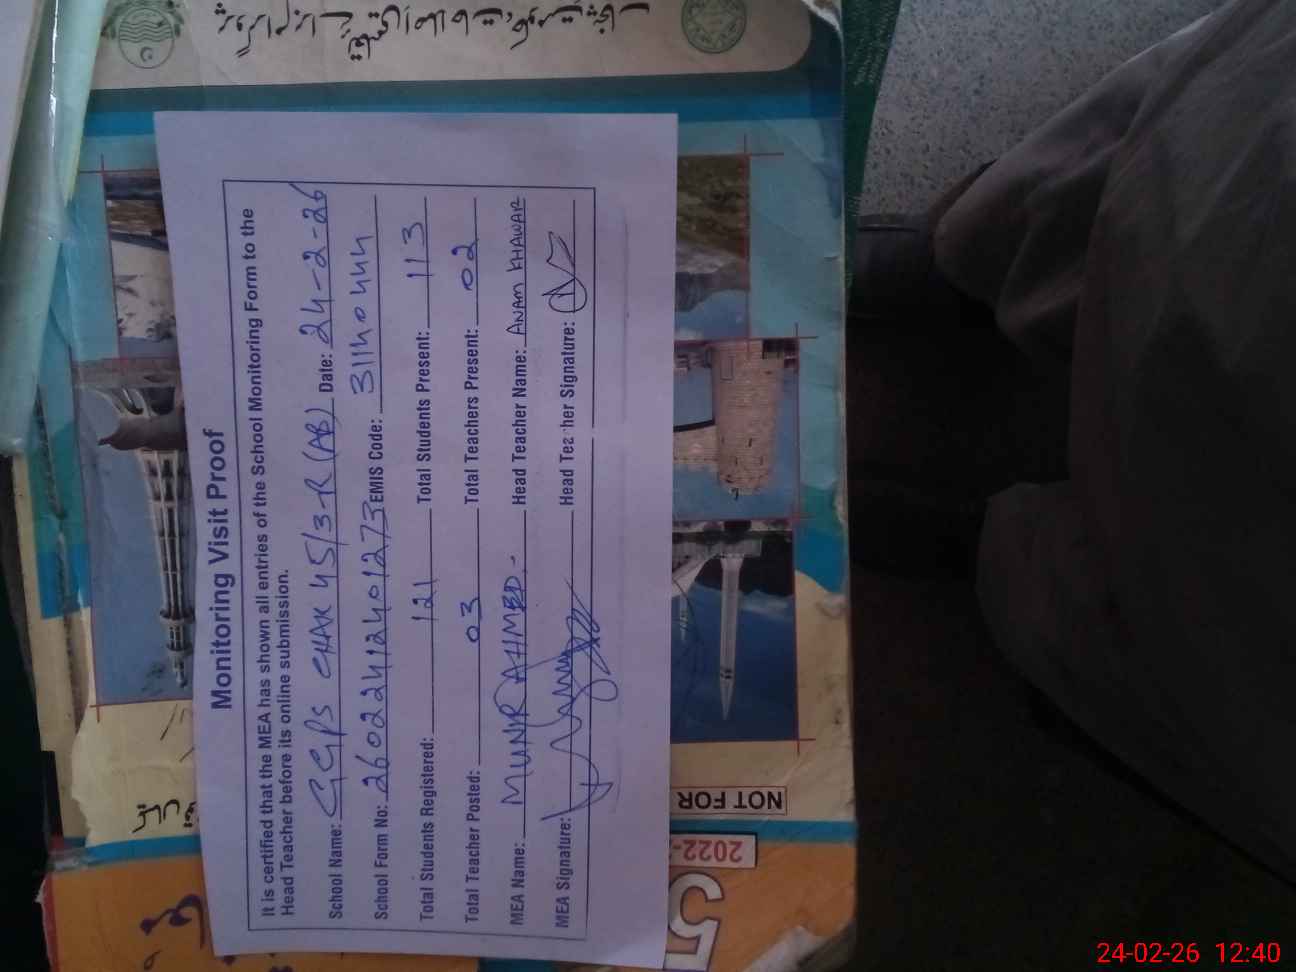 Monitoring Visit Proof
It is certified that the MEA has shown all entries of the School Monitoring Form to the
Head Teacher before its online submission.
School Name: GGPS CHAK 45/3-R (AB) Date: 24-2-26
School Form No: 26022412401273 EMIS Code: 31140444
Total Students Registered: 121 Total Students Present: 113
Total Teacher Posted: 03 Total Teachers Present: 02
MEA Name: MUNIR AHMED.- Head Teacher Name: ANAM KHAWAR
MEA Signature: Head Teacher Signature:
NOT FOR
2022-
5
24-02-26 12:40